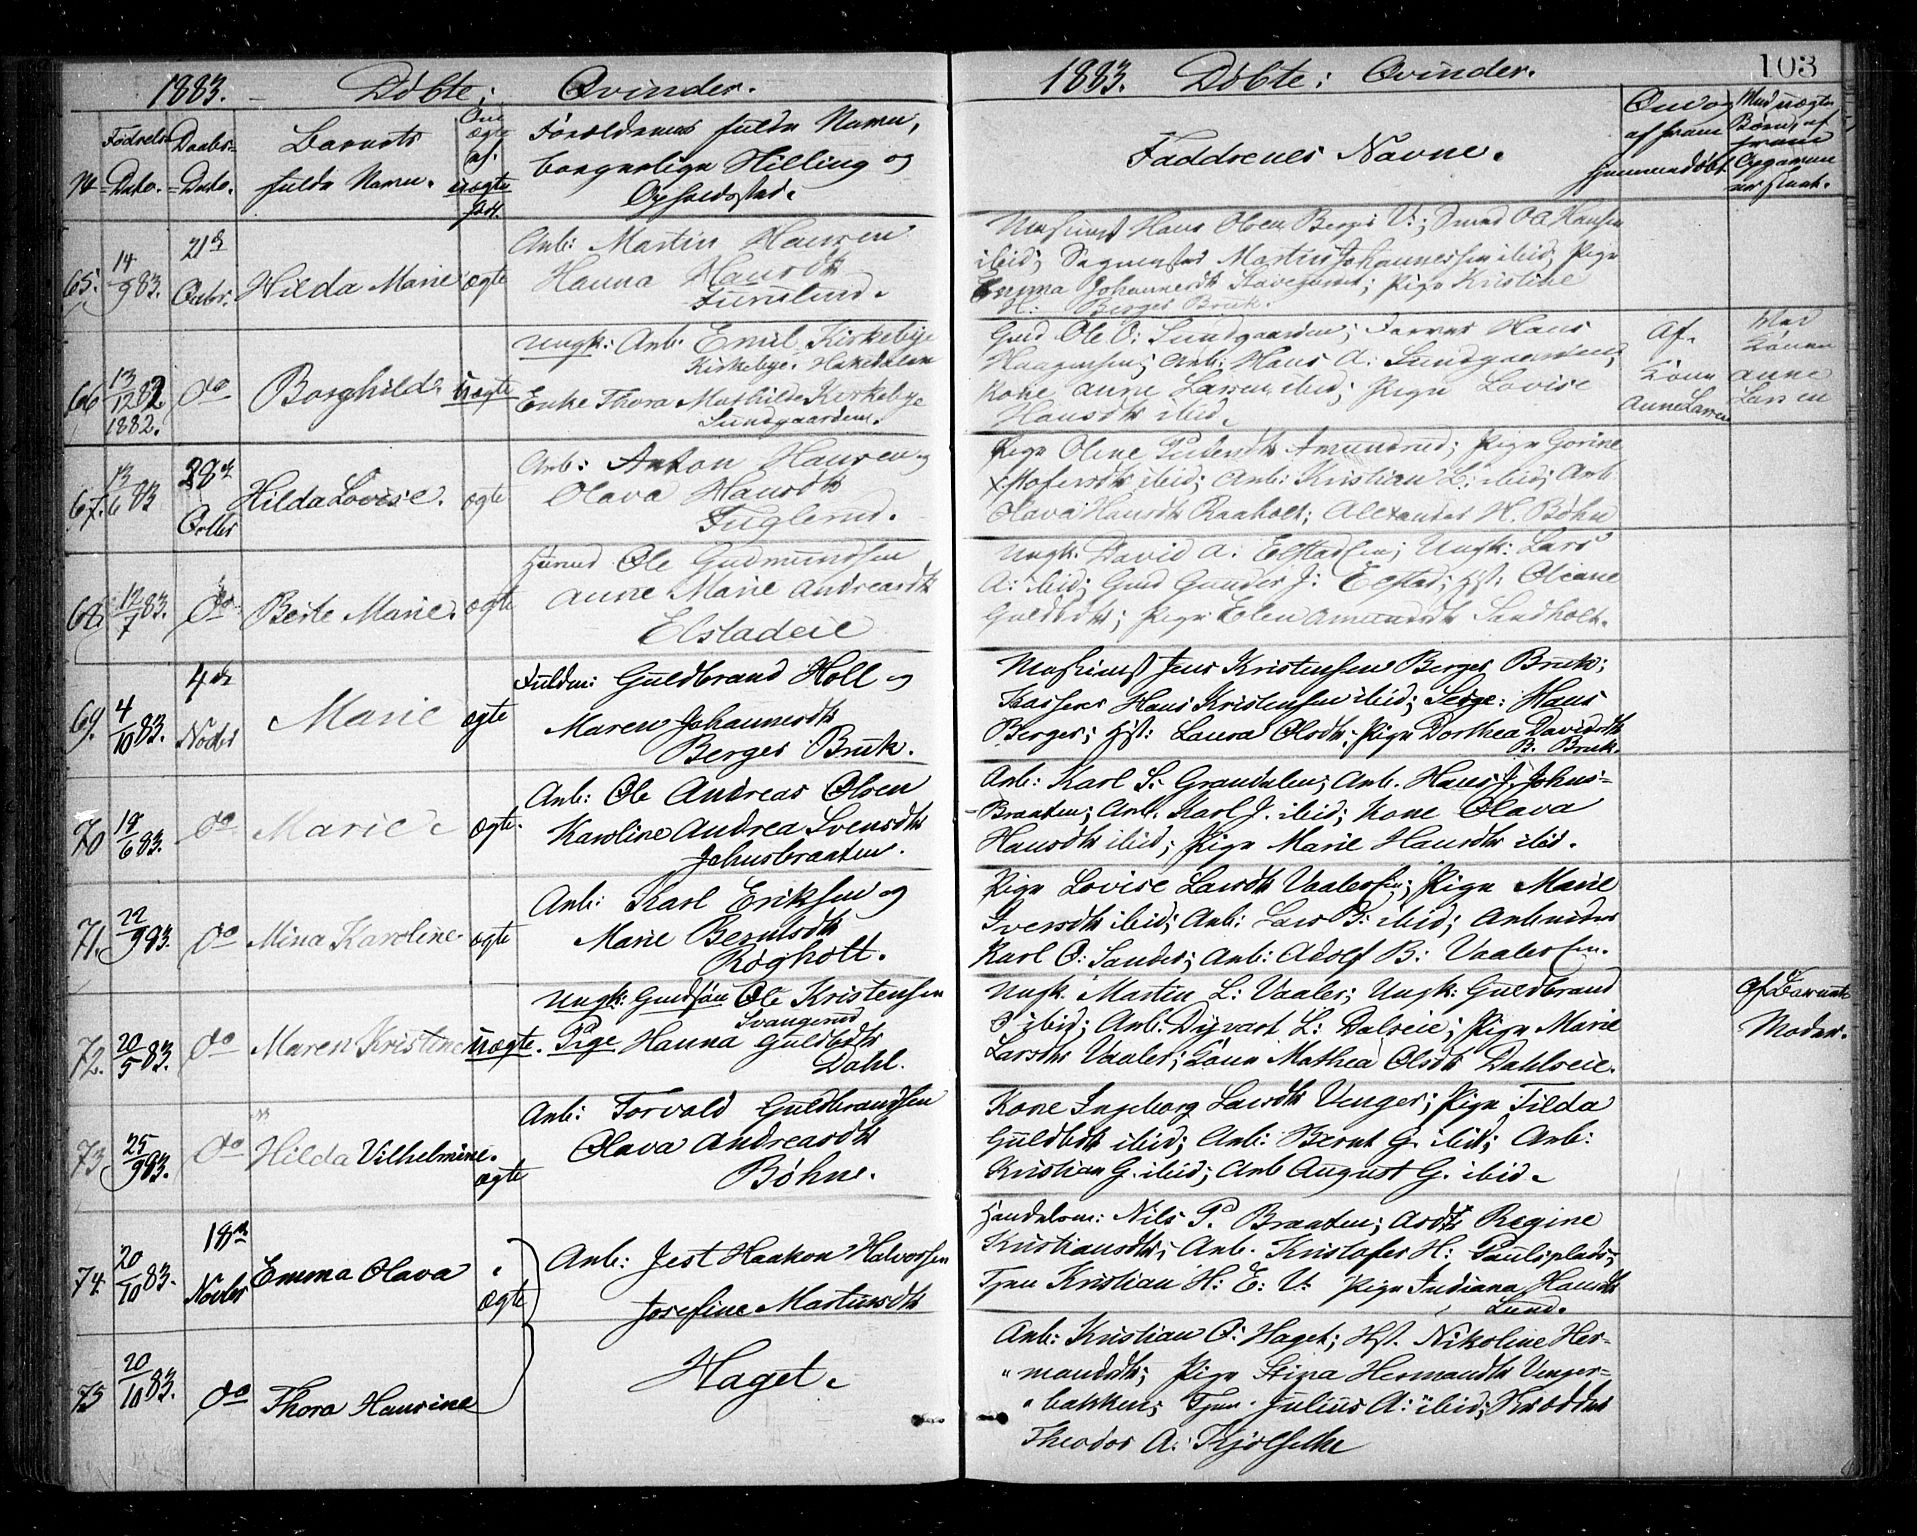 1883. Döbte: Qvinder.
No
Fødsels-
Dato.
Daabs-
Dato.
Barnets
fulde Navn.
Om
ægte
el.
uægte
født.
Forældrenes fulde Navn,
borgerlige Stilling og
Opholdssted.
65.
14/9 83.
21de
Octbr.
Hilda Marie
ægte
Arb: Martin Hansen
Hanna Hansdtr
66
13/12 82
1882.
do
Borghild
uægte
Ungk: Arb. Emil Kirkebye
Kirkebye. Hakedalen
Enke Thora Mathilde Kirkebye
Sundgaarden.
67.
13/6 83
28de
Octbr
Hilda Lovise.
ægte
Arb: Anton Hansen og
Olava Hansdtr
Fuglerud.
68.
12/7 83.
do
Berte Marie.
ægte
Husmd Ole Gudmundsen
Anne Marie Andreasdtr
Elstadeie
69.
4/10 83.
4de
Novbr
Marie
ægte
Fuldm: Guldbrand Holl og
Maren Johannesdtr
Berger Bruk.
70
18/6 83.
do
Marie.
ægte.
Arb: Ole Andreas Olsen
Karoline Andrea Svensdtr
Johnsbraaten.
71.
22/9 83.
do
Mina Karoline.
ægte
Arb: Karl Eriksen og
Marie Berntsdtr
Røgholt.
72.
20/5 83.
do
Maren Kristine
uægte.
Ungk: Gmdsøn Ole Kristensen
Svangerud
Pige Hanna Guldbdtr
Dahl.
73
25/9 83.
do
Hilda Vilhelmine.
ægte
Arb: Torvald Guldbrandsen
Olava Andreasdtr
Bøhne.
74.
20/10 83.
18de
Novbr
Emma Olava
ægte
Arb: Jest Haakon Halvorsen
Josefine Martinsdtr
75
20/10 83.
do
Thora Hansine
Haget.
1883. Döbte: Qvinder.
103
Faddrenes Navne.
Maskinist Hans Olsen Berger V:; Smed O A Hansen
ibid; Martin Johannessen ibid; Pige
Emma Johannesdtr; Pige Kristine
H: Berger Bruk.
Gmd Ole O: Sundgaarden; Hans
Haagensen; Arb: Hans A: Sundgaarden;
Kone Anne Larsen ibid; Pige Lovise
Hansdtr ibid.
Af
Kone
Anne Larsen
Ved
Konen
Anne
Larsen
Pige Oline Pedersdtr Amundrud; Pige Gorine
Kristofersdtr ibid; Arb: Kristian L: ibid; Arb
Olava Hansdtr Raaholt; Alexander H. Bøhn
Ungk: David A: Elstadeie; Ungk: Lars
A: ibid; Gmd Gunder J: Elstad; Hst: Oleane
Guldbdtr; Pige Elen Amundsdtr Sandholt.
Maskinist Jens Kristensen Berger Bruk;
Kasserer Hans Kristensen ibid; Hans
Berger; Hst: Laura Olsdtr; Pige Dorthea Davidsdtr
B. Bruk.
Arb: Karl S: Grandalen; Arb. Hans J. Johns-
-Braaten; Arb. Karl J. ibid; Kone Olava
Hansdtr ibid; Pige Marie Hansdtr ibid.
Pige Lovise Larsdtr Vaalereie; Pige Marie
Iversdtr ibid; Arb: Lars B: ibid; Arbeider
Karl O: Sander; Arb: Adolf B: Vaalereie.
Ungk. Martin L: Vaaler; Ungk: Guldbrand
ibid; Arb: Dyvart L: Dalseie; Pige Marie
Larsdtr Vaaler; Kone Mathea Olsdtr Dahlseie.
Af Barnets
Moder.
Kone Ingeborg Larsdtr Venger; Pige Tilda
Guldbdtr ibid; Arb: Bernt G. ibid; Arb:
Kristian G. ibid; Arb August G. ibid.
Handelsm: Nils P. Braaten; Regine
Kristiansdtr; Arb. Kristofer H: Paulsplads;
Tjen Kristian H: E: V. Pige Indiana Hansdtr
Lund.
Arb: Kristian O: Haget; Hst. Nikoline Her-
"mansdtr; Pige Stina Hermansdtr Venger-
"bakken; Tjen. Julius A: ibid;
Theodor A. Kjølsethe